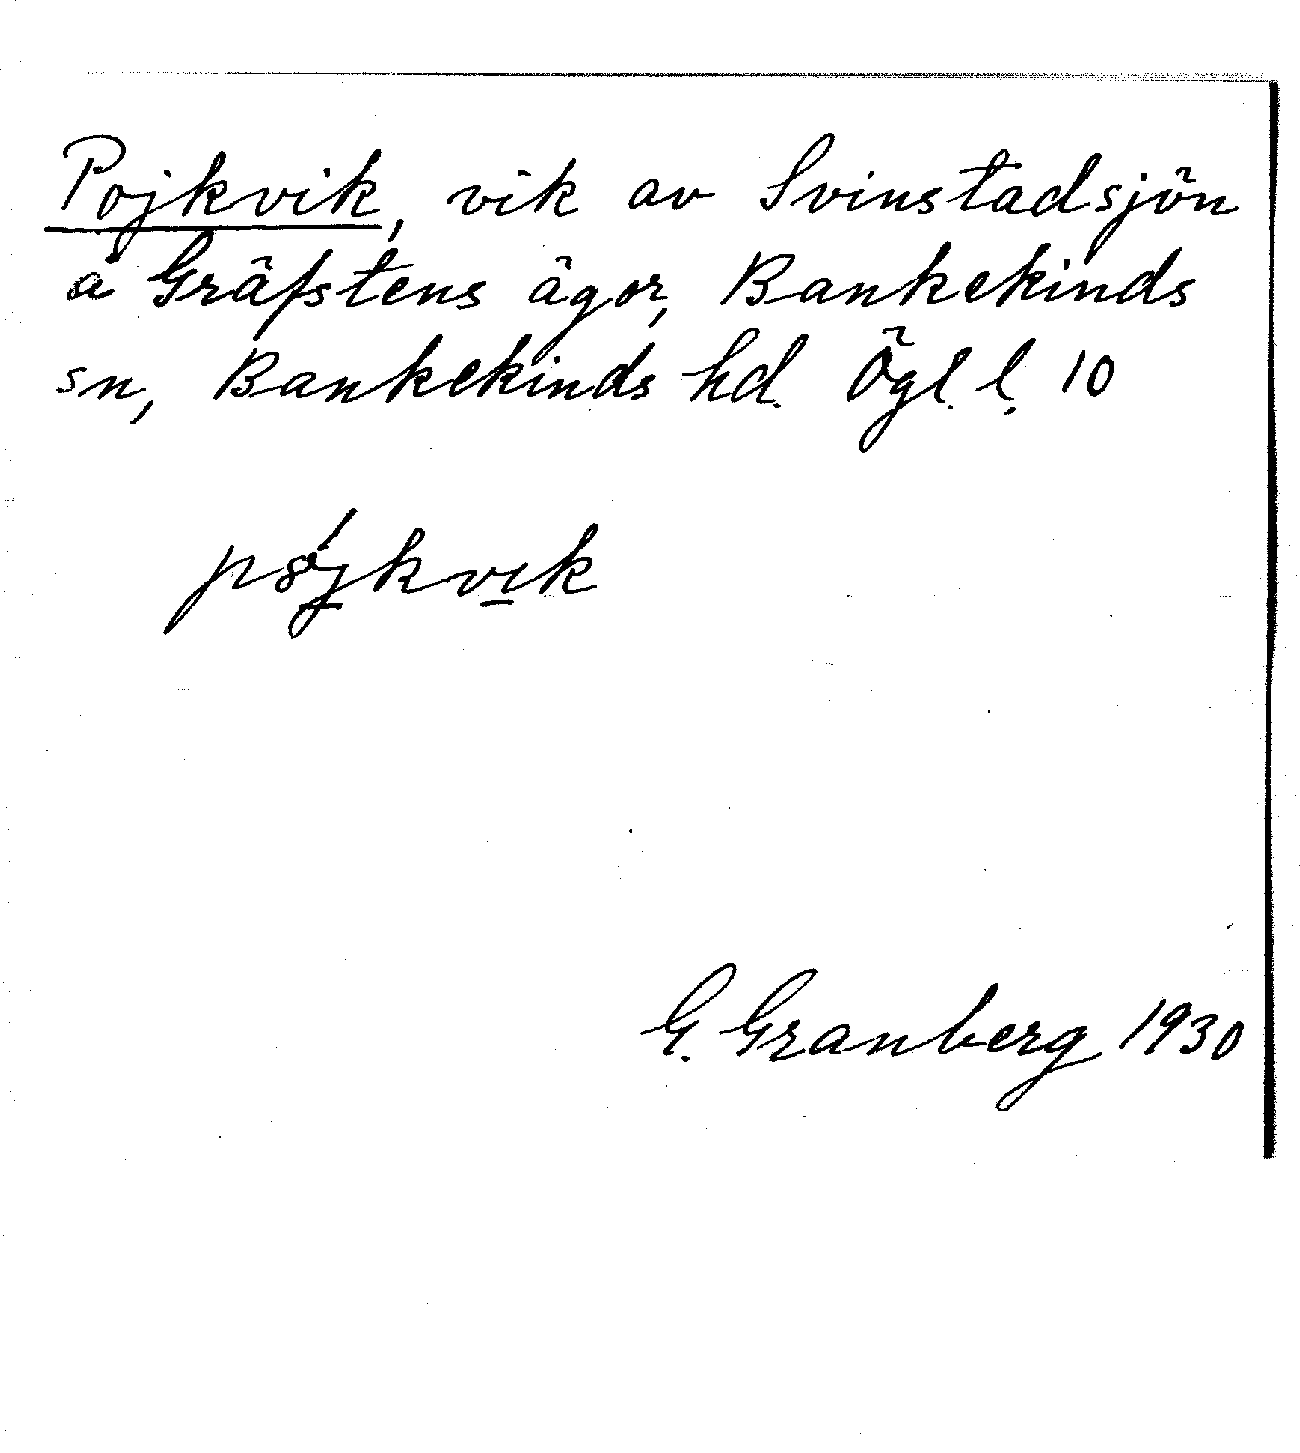 Pojkvik, vik av Svinstadsjön
å Gräfstens ägor, Bankekinds
sn, Bankekinds hd. Ögl. l. 10
G. Granberg 1930